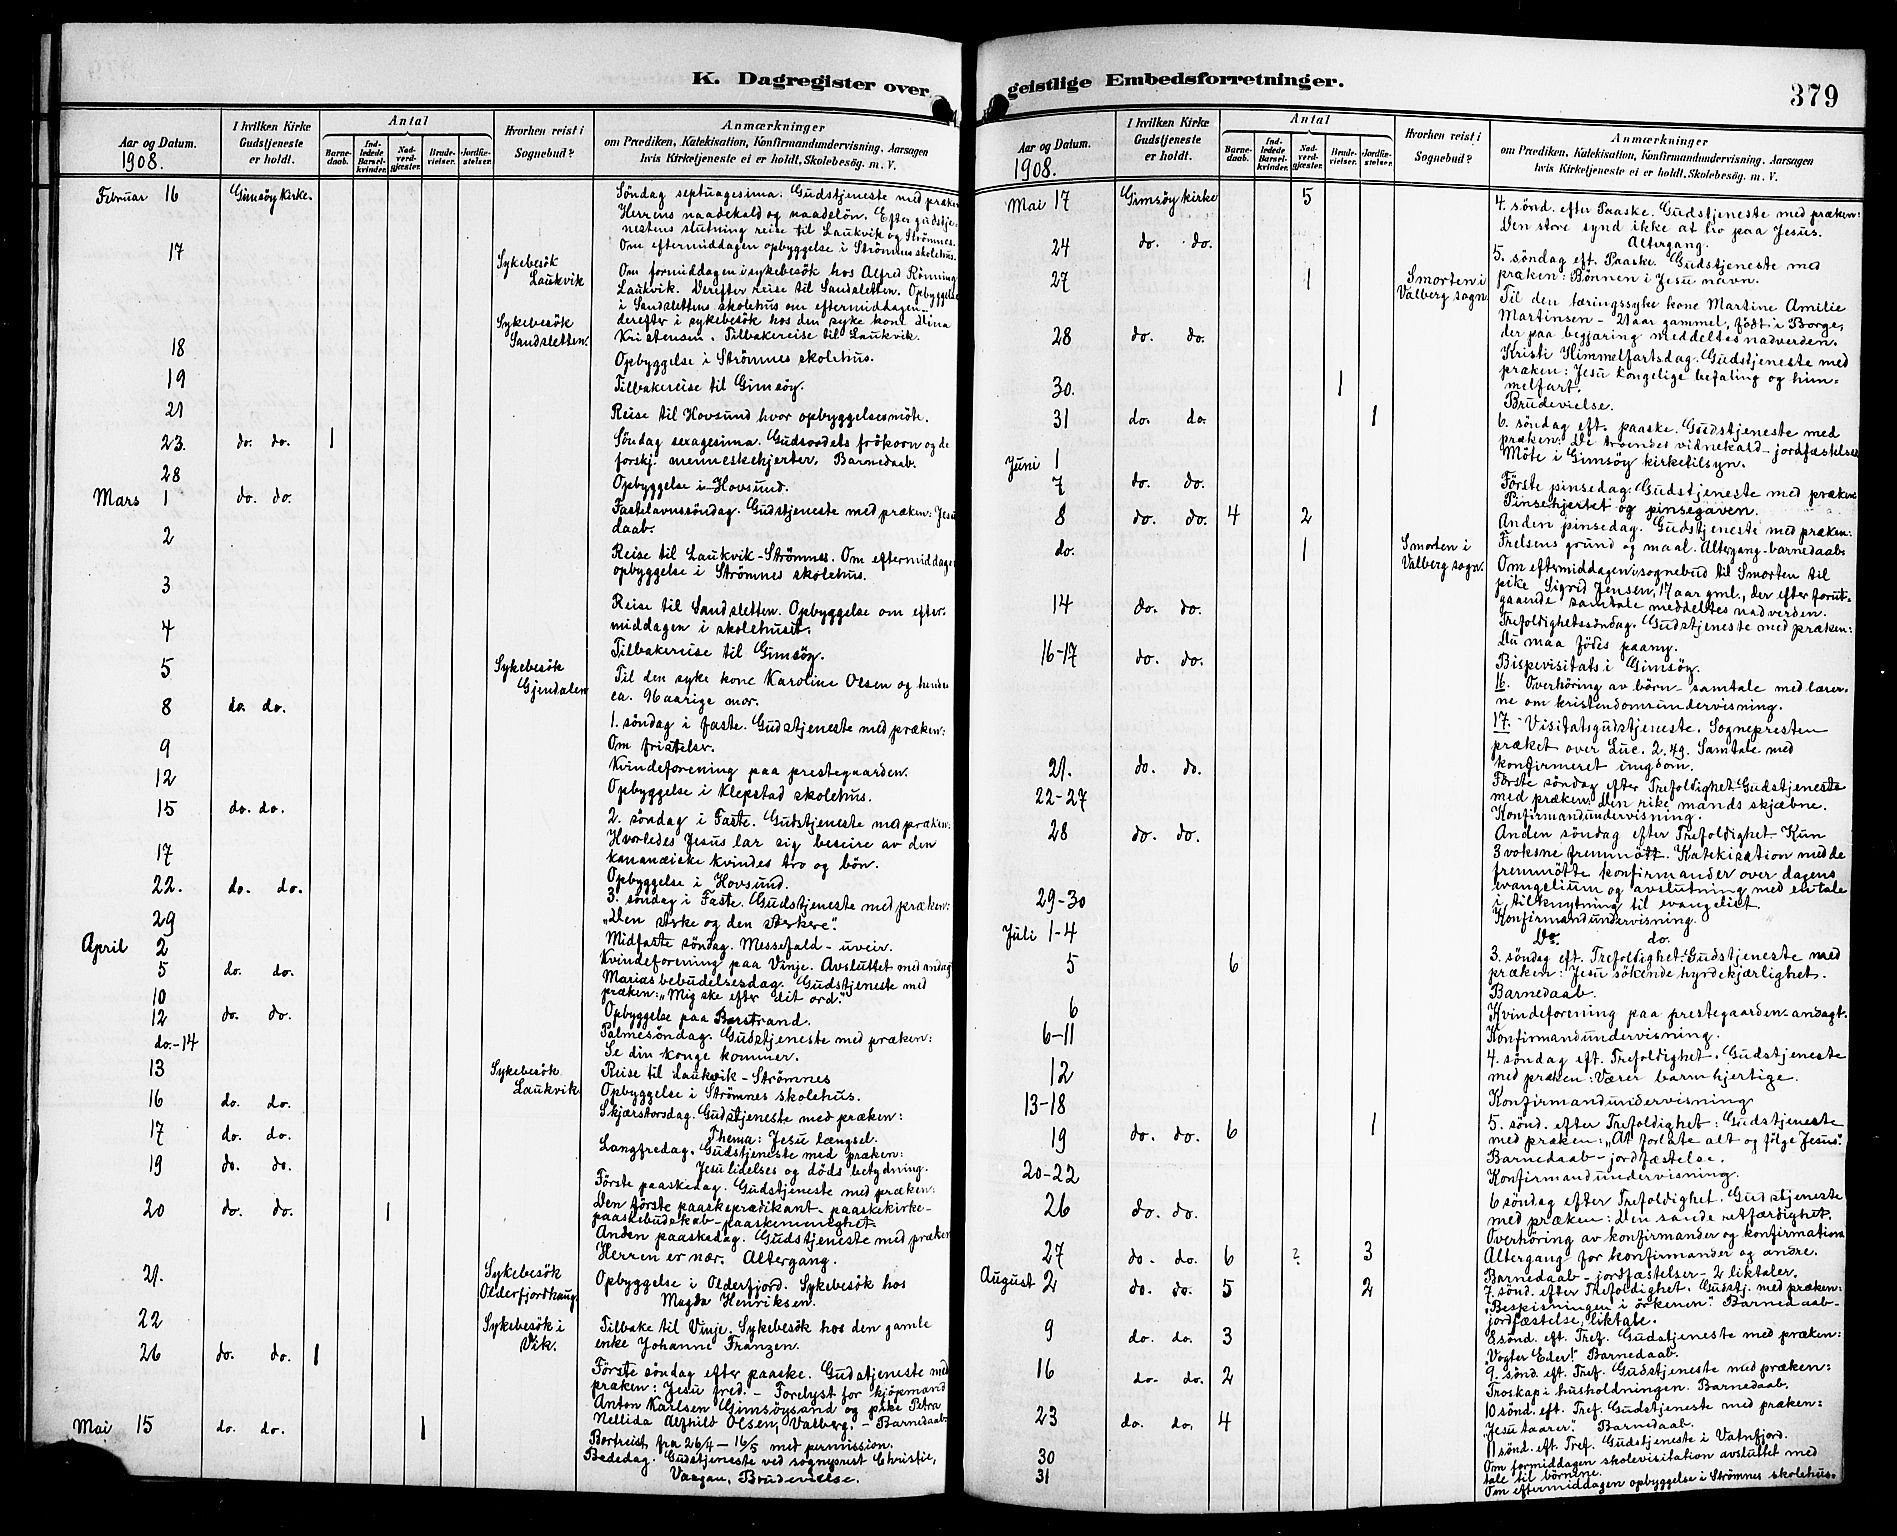 K. Dagregister over
Aar og Datum.
1908.
I hvilken Kirke Gudstjeneste er holdt.
Antal
Barnedaab.
Indledede Barselkvinder.
Nadverdgjæster.
Brudevielser.
Jordfæstelser.
Hvorhen reist i Sognebud?
Anmærkninger
om Prædiken, Katekisation, Konfirmandundervisning, Aarsagen
hvis Kirketjeneste ei er holdt, Skolebesög. m. V.
Februar 16 Gimsöy kirke. Söndag septuagesima. Gudstjeneste med præken
Herrens naadekald og naadelön. Efter gudstje-
nestens slutning reise til Laukvik og Strömnes.
Om eftermiddagen opbyggelse i Strömnes skolehus.
17 Sykebesök Laukvik Om formiddagen i sykebesök hos Alfred Rönning
Laukvik. Derefter reise til Sandsletten. Opbyggelse
i Sandslettens skolehus om eftermiddagen
Sykebesök Sandsletten. derefter i sykebesök hos den syke kone Stina
Kristensen. Tilbakereise til Laukvik.
18 Opbyggelse i Strömnes skolehus.
19 Tilbakereise til Gimsöy.
21 Reise til Hovsund hvor opbyggelsesmöte.
23. do. do. 1 Söndag sexagesima. Gudsordets frökorn og de
forskj. menneskehjerter. Barnedaab.
28 Opbyggelse i Hovsund.
Mars 1 do. do. Fastelavnssöndag. Gudstjeneste med præken: Jesu
daab.
2 Reise til Laukvik-Strömnes. Om eftermiddagen
opbyggelse i Strömnes skolehus.
3 Reise til Sandsletten. Opbyggelse om efter-
middagen i skolehuset.
4 Tilbakereise til Gimsöy.
5 Sykebesök Gjendalen Til den syke kone Karoline Olsen og hendes
ca. 96aarige mor.
8 do. do. 1. söndag i faste. Gudstjeneste med præken:
Om fristelse.
9 Kvindeforening paa prestegaarden.
12 Opbyggelse i Klepstad skolehus.
15 do. do. 2. söndag i Faste. Gudstjeneste med præken:
Hvorledes Jesus lar sig beseire av den
kananæiske kvindes tro og bön.
17 Opbyggelse i Hovsund.
22. do. do. 3. söndag i Faste. Gudstjeneste med præken:
„Den sterke og den sterkere".
29 Midfaste söndag. Messefald - uveir.
April 2 Kvindeforening paa Vinje. Avsluttet med andagt
5 do. do. Mariæ bebudelsesdag. Gudstjeneste med
præken: „Mig ske efter dit ord."
10 Opbyggelse paa Barstrand.
12 do. do. Palmesöndag. Gudstjeneste med præken:
Se din konge kommer.
do.-14 Reise til Laukvik-Strömnes
13 Sykebesök Laukvik Opbyggelse i Strömnes skolehus.
16 do. do. Skjærstorsdag. Gudstjeneste med præken:
Thema: Jesu længsel.
17 do. do. Langfredag. Gudstjeneste med præken:
Jesu lidelses og döds betydning.
19 do. do. Förste paaskedag. Gudstjeneste med præken:
Den förste paaskeprædikant- paaskekirke-
paaskebudskab-paaskemenighet.
20 do. do. 1 Anden paaskedag. Gudstjeneste med præken
Herren er nær. Altergang.
21. Sykebesök Olderfjordhaug Opbyggelse i Olderfjord. Sykebesök hos
Magda Henriksen.
22 Sykebesök i Vik. Tilbake til Vinje. Sykebesök hos den gamle
enke Johanne Franzen.
26 do. do. 1 Förste söndag efter paaske. Gudstjeneste med
præken: Jesu fred. - Forelyst for kjöpmand
Anton Karlsen Gimsöysand og pike Petra
Nellida Alfhild Olsen, Valberg. - Barnedaab.
Bortreist fra 26/4 - 16/5 med permission.
Mai 15 do. do. 1 Bededag. Gudstjeneste ved sogneprest Christie,
Vaagan. Brudevielse.
geistlige Embedsforretninger.
379
Aar og Datum.
1908.
I hvilken Kirke Gudstjeneste er holdt.
Antal
Barnedaab.
Indledede Barselkvinder.
Nadverdgjæster.
Brudevielser.
Jordfæstelser.
Hvorhen reist i Sognebud?
Anmærkninger
om Prædiken, Katekisation, Konfirmandundervisning, Aarsagen
hvis Kirketjeneste ei er holdt, Skolebesög. m. V.
Mai 17 Gimsöy kirke 5 4. sönd. efter Paaske. Gudstjeneste med præken:
Den store synd ikke at tro paa Jesus.
Altergang.
24 do. do. 5. söndag eft. Paaske. Gudstjeneste med
præken: Bönnen i Jesu navn.
27 1 Smorten i Valberg sogn Til den tæringssyke kone Martine Amilie
Martinsen - 21 aar gammel, födt i Borge,
der paa begjæring meddeltes nadverden.
28 do. do. Kristi Himmelfartsdag. Gudstjeneste med
præken: Jesu kongelige befaling og him-
melfart.
30. 1 Brudevielse.
31 do. do. 1 6. söndag eft. paaske. Gudstjeneste med
præken: De troendes vidnekald - jordfæstelse
Juni 1 Möte i Gimsöy kirketilsyn.
7 do. do. Förste pinsedag. Gudstjeneste med præken:
Pinsehjertet og pinsegaven.
8 do. do. 4 2 Anden pinsedag. Gudstjeneste med præken:
Frelsens grund og maal. Altergang-barnedaab
do. 1 Smorten i Valberg sogn. Om eftermiddagen i sognebud til Smorten til
pike Sigrid Jensen, 17 aar gml., der efter forut-
gaaende samtale meddeltes nadverden.
14 do. do. Trefoldighetssöndag. Gudstjeneste med præken:
Du maa födes paany.
16-17 do. do. Bispevisitats i Gimsöy.
16. Overhöring av börn - samtale med lærer-
ne om kristendomsundervisning.
17. Visitatsgudstjeneste. Sognepresten
præket over Luc. 2.49. Samtale med
konfirmeret ungdom.
21. do. do. Förste söndag efter Trefoldighet. Gudstjeneste
med præken: Den rike mands skjæbne.
22-27 Konfirmandundervisning.
28 do. do. Anden söndag efter Trefoldighet. Kun
3 voksne fremmött. Katekisation med de
fremmötte konfirmander over dagens
evangelium og avslutning med en tale
i tilknytning til evangeliet.
29-30 Konfirmandundervisning.
Juli 1-4 Do. do.
5 6 3. söndag eft. Trefoldighet. Gudstjeneste med
præken: Jesu sökende hyrdekjærlighet.
Barnedaab.
6 Kvindeforening paa prestegaarden. andagt.
6-11 Konfirmandundervisning.
12 4. söndag eft. Trefoldighet. Gudstjeneste
med præken: Værer barmhjertige.
13-18 Konfirmandundervisning
19 do. do. 6 1 5. sönd. efter Trefoldighet: Gudstjeneste
med præken: „At forlate alt og fölge Jesus".
Barnedaab-jordfæstelse.
20-22 Konfirmandundervisning.
26 do. do. 6 söndag efter Trefoldighet. Gudstjeneste
med præken: Den sande retfærdighet.
Overhöring av konfirmander og konfirmation
27 do. do. 6 2 3 Altergang for konfirmander og andre.
Barnedaab - jordfæstelser - 2 liktaler.
August 2 do. do. 5 2 7. sönd. efter Trefoldighet. Gudstj. med præken:
„Bespisningen i örkenen". Barnedaab-
jordfæstelse, liktale.
9 do. do. 3 8 sönd. eft. Tref. Gudstjeneste med præken:
„Vogter Eder!" Barnedaab.
16 do. do. 2 9. sönd. eft. Tref. Gudstjeneste med præken:
Troskap i husholdningen. Barnedaab.
23 do. do. 4 10 sönd. eft. Tref. Gudstjeneste med præken:
„Jesu taarer." Barnedaab.
30 11 sönd. eft. Tref. Gudstjeneste i Vatnfjord.
31 Om formiddagen skolevisitation avsluttet med
tale til börnene.
Om eftermiddagen opbyggelse i Strömnes skolehus.